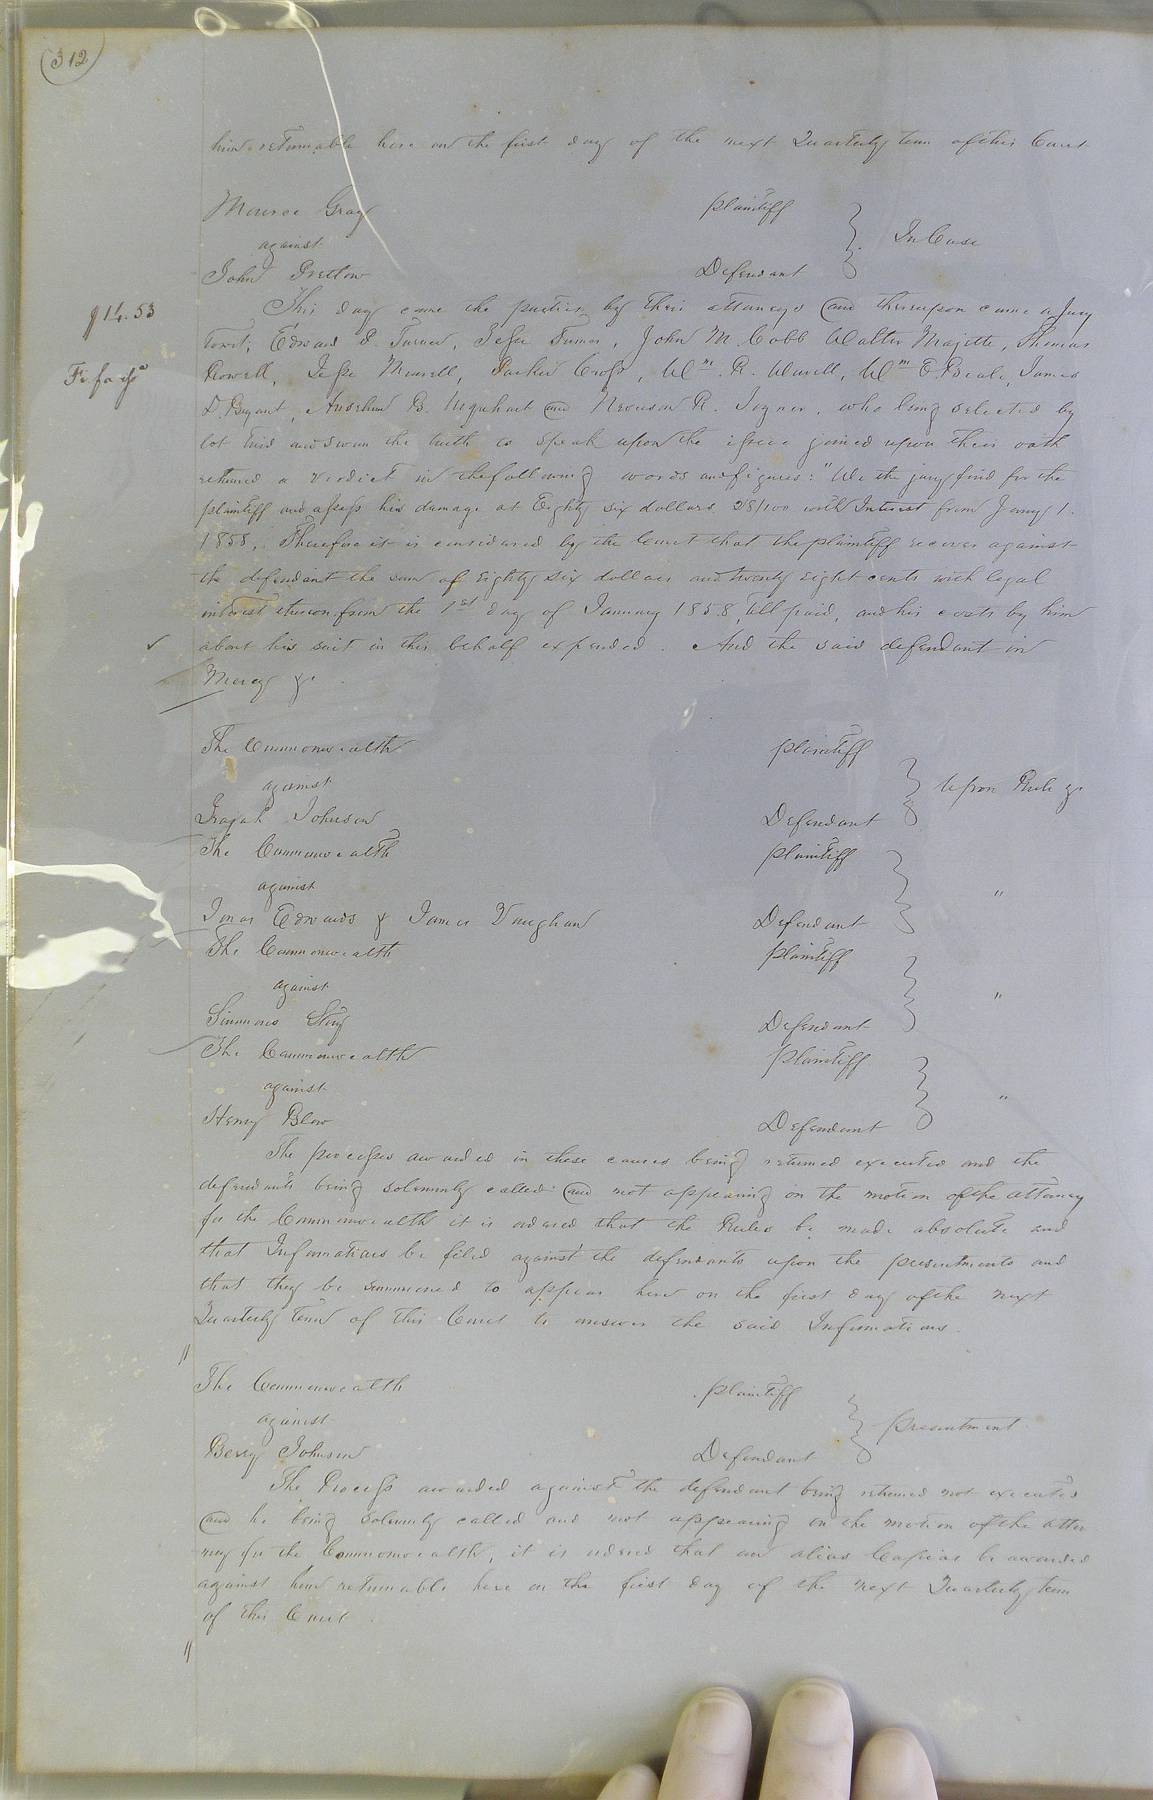 312
him returnable here on the first day of the next Quarterly term of this Court
Monroe Gray Plaintiff
against } In Case
John Pretlow Defendant
This day came the parties by their attorneys and thereupon came a Jury
$14.53
towit; Edward P. Turner, Jesse Turner, John M. Cobb Walter Majette, Thomas
Powell, Jesse Murrell, Parker Cross, Wm. R. Warell, Wm E Beale, James
Fi. fa
D. Bryant, Anselem B. Urquhart and R. Joyner, who being selected by
lot tried and sworn the truth to speak upon the issue joined upon their oath
returned a verdict in the following words and figures: "We the jury find for the
plaintiff and assess his damage at Eighty six dollars 28/100 with Interest from Jany 1.
1858, Therefore it is considered by the Court that the plaintiff recover against
the defendant the sum of Eighty six dollars and twenty eight cents with legal
interest thereon from the 1st day of January 1858, till paid, and his costs by him
about his suit in this behalf expended. And the said defendant in
Mercy &c.
The Commonwealth Plaintiff
against } Upon Rule &c
Johnson Defendant
The Commonwealth Plaintiff
against } "
Edwards & James Vaughan Defendant
The Commonwealth Plaintiff
against } "
Simmons Defendant
The Commonwealth Plaintiff
against } "
Henry Blow Defendant
The processes awarded in these causes being returned executed and the
defendants being solemnly called and not appearing on the motion of the attorney
for the Commonwealth it is ordered that the Rules be made absolute and
that Informations be filed against the defendants upon the presentments and
that they be summoned to appear here on the first day of the next
Quarterly term of this Court to answer the said Informations.
The Commonwealth Plaintiff
against } Presentment
Berry Johnson Defendant
The Process awarded against the defendant being returned not executed
and he being solemnly called and not appearing on the motion of the attor
ney for the Commonwealth, it is ordered that an alias Capias be awarded
against him returnable here on the first day of the next Quarterly term
of this Court